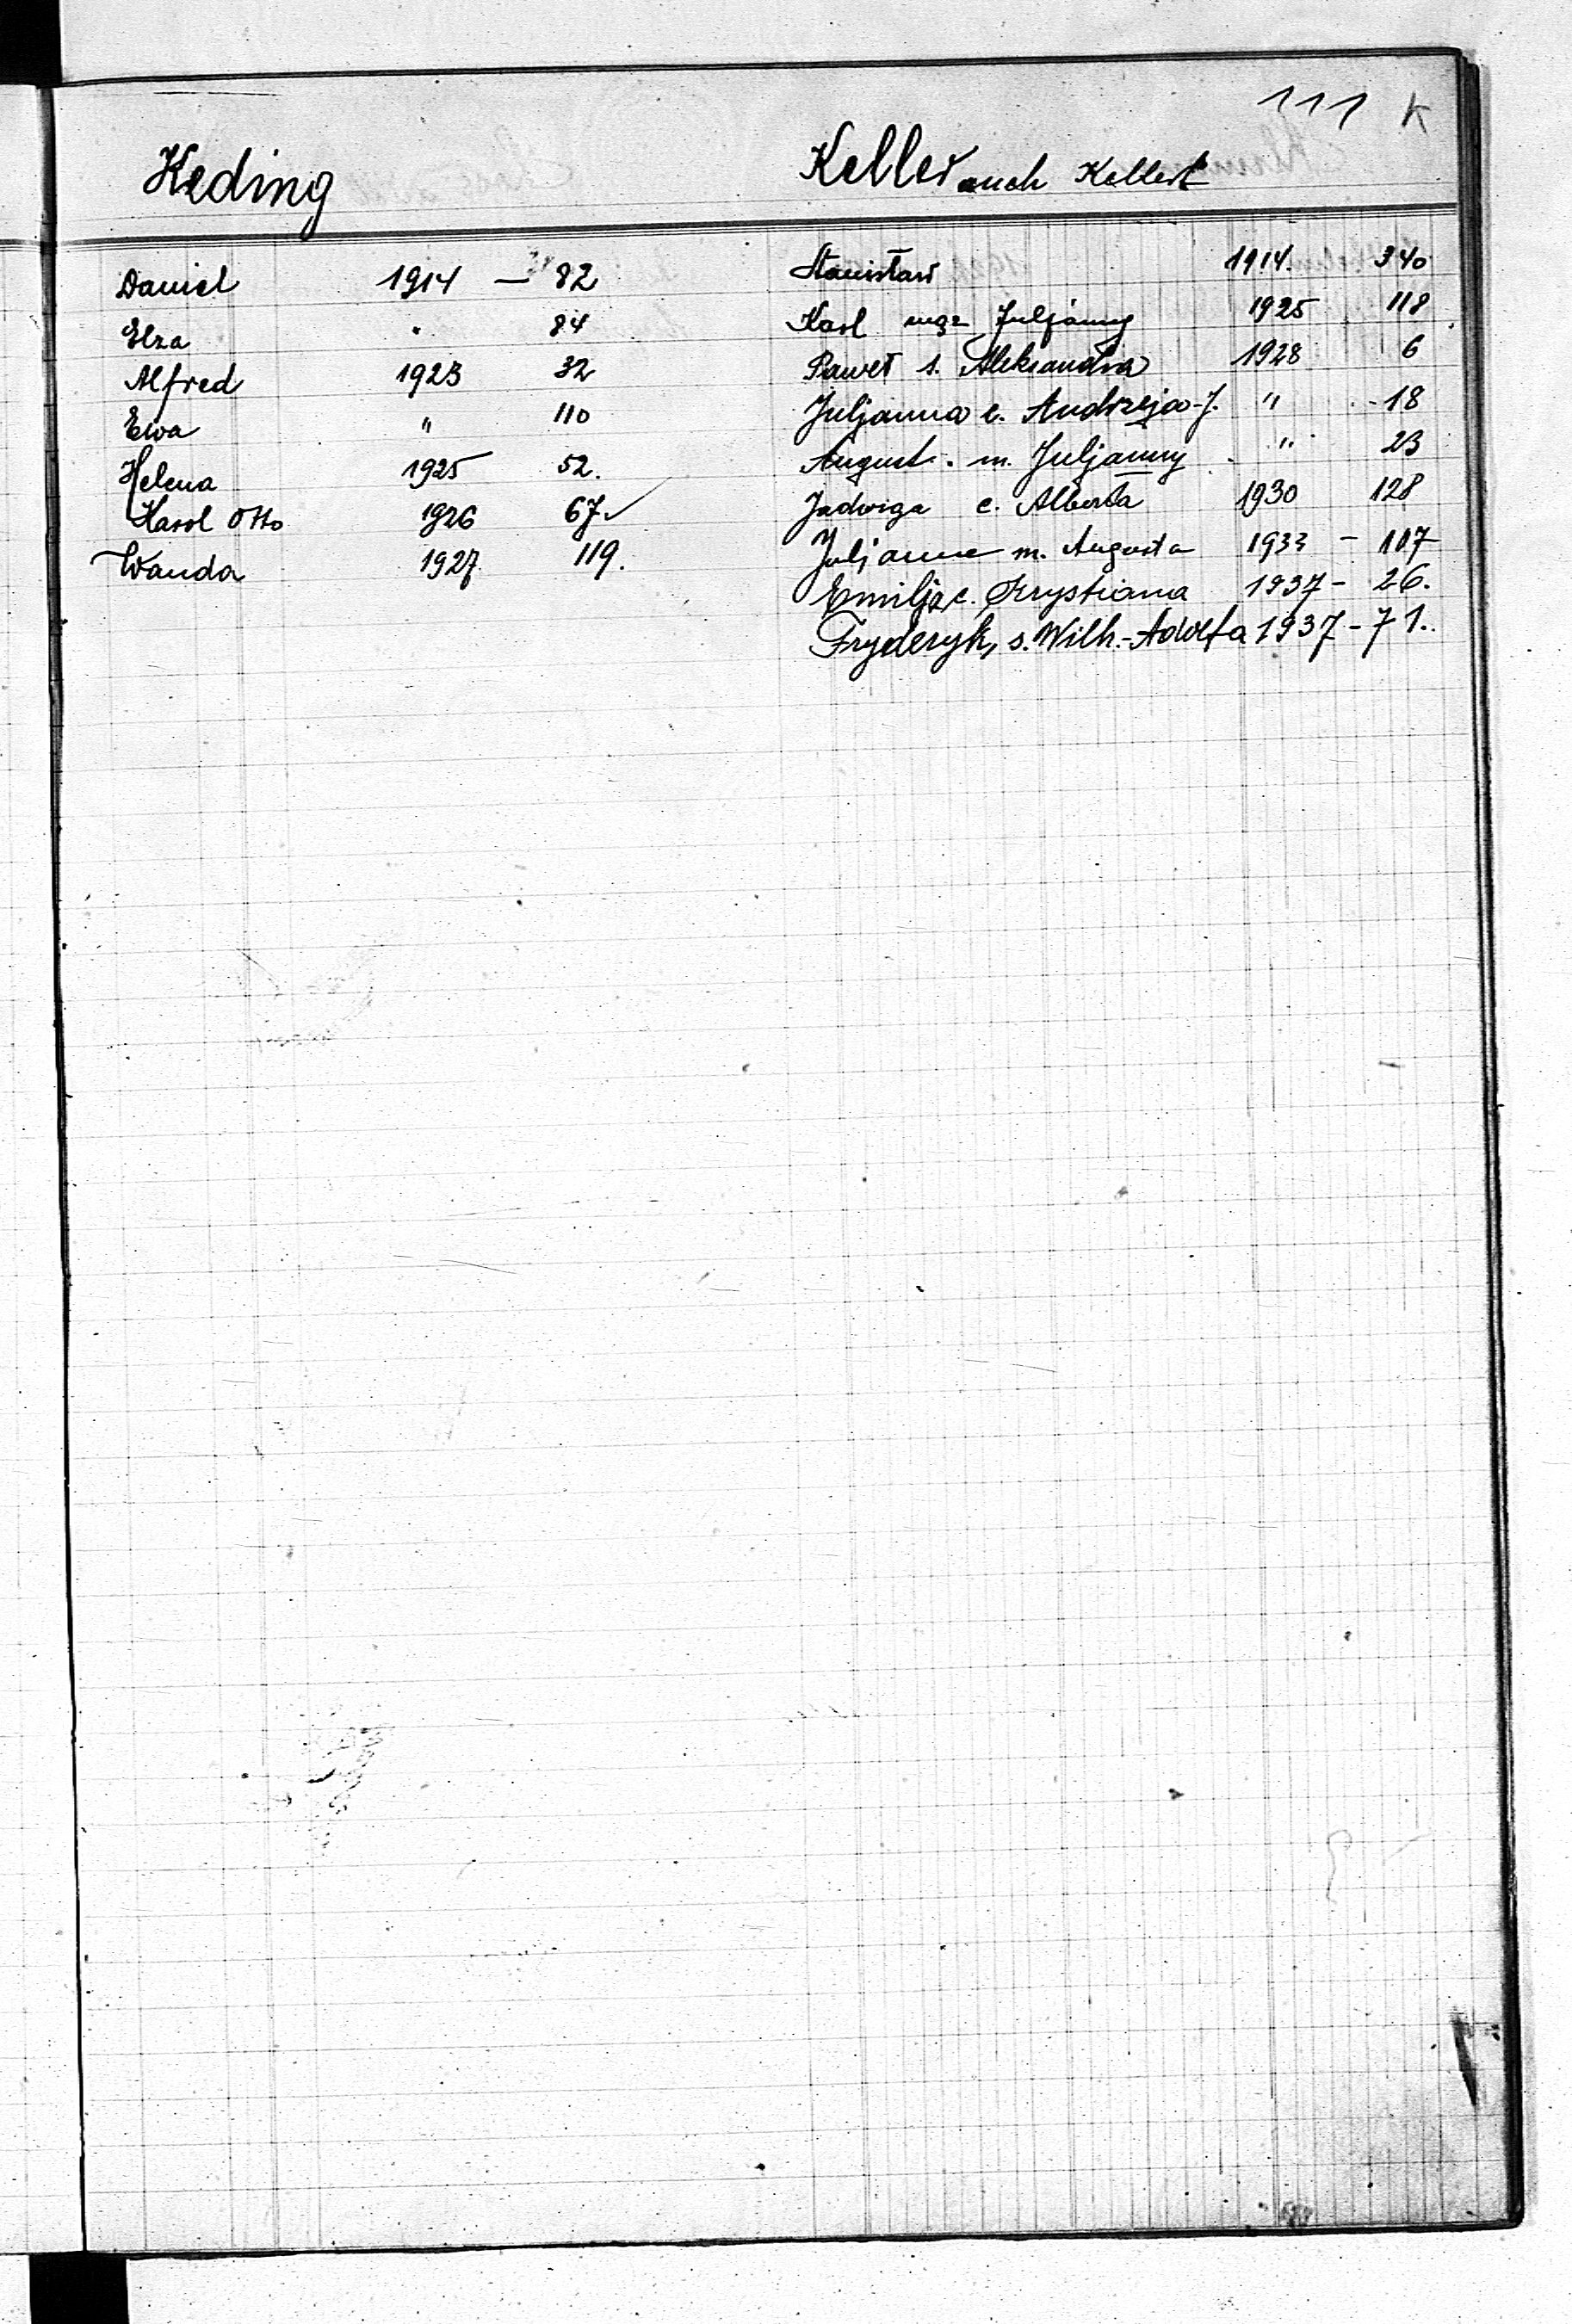 111 K
Keding
Daniel 1914 — 82
Elza " 84
Alfred 1923 32
Ewa " 110
Helena 1925 52.
Karol Otto 1926 67
Wanda 1927 119.
Keller auch Kellert
Stanisław 1914. 340
Karl mąż Juljanny 1925 118
Paweł s. Aleksandra 1928 6
Juljanna c. Andrzeja-J. " 18
August. m. Juljanny " 23
Jadwiga c. Alberta 1930 128
Juljanna m. Augusta 1933 - 107
Emilja c. Krystiana 1937 - 26.
Fryderyk, s. Wilh.-Adolfa 1937 - 71.